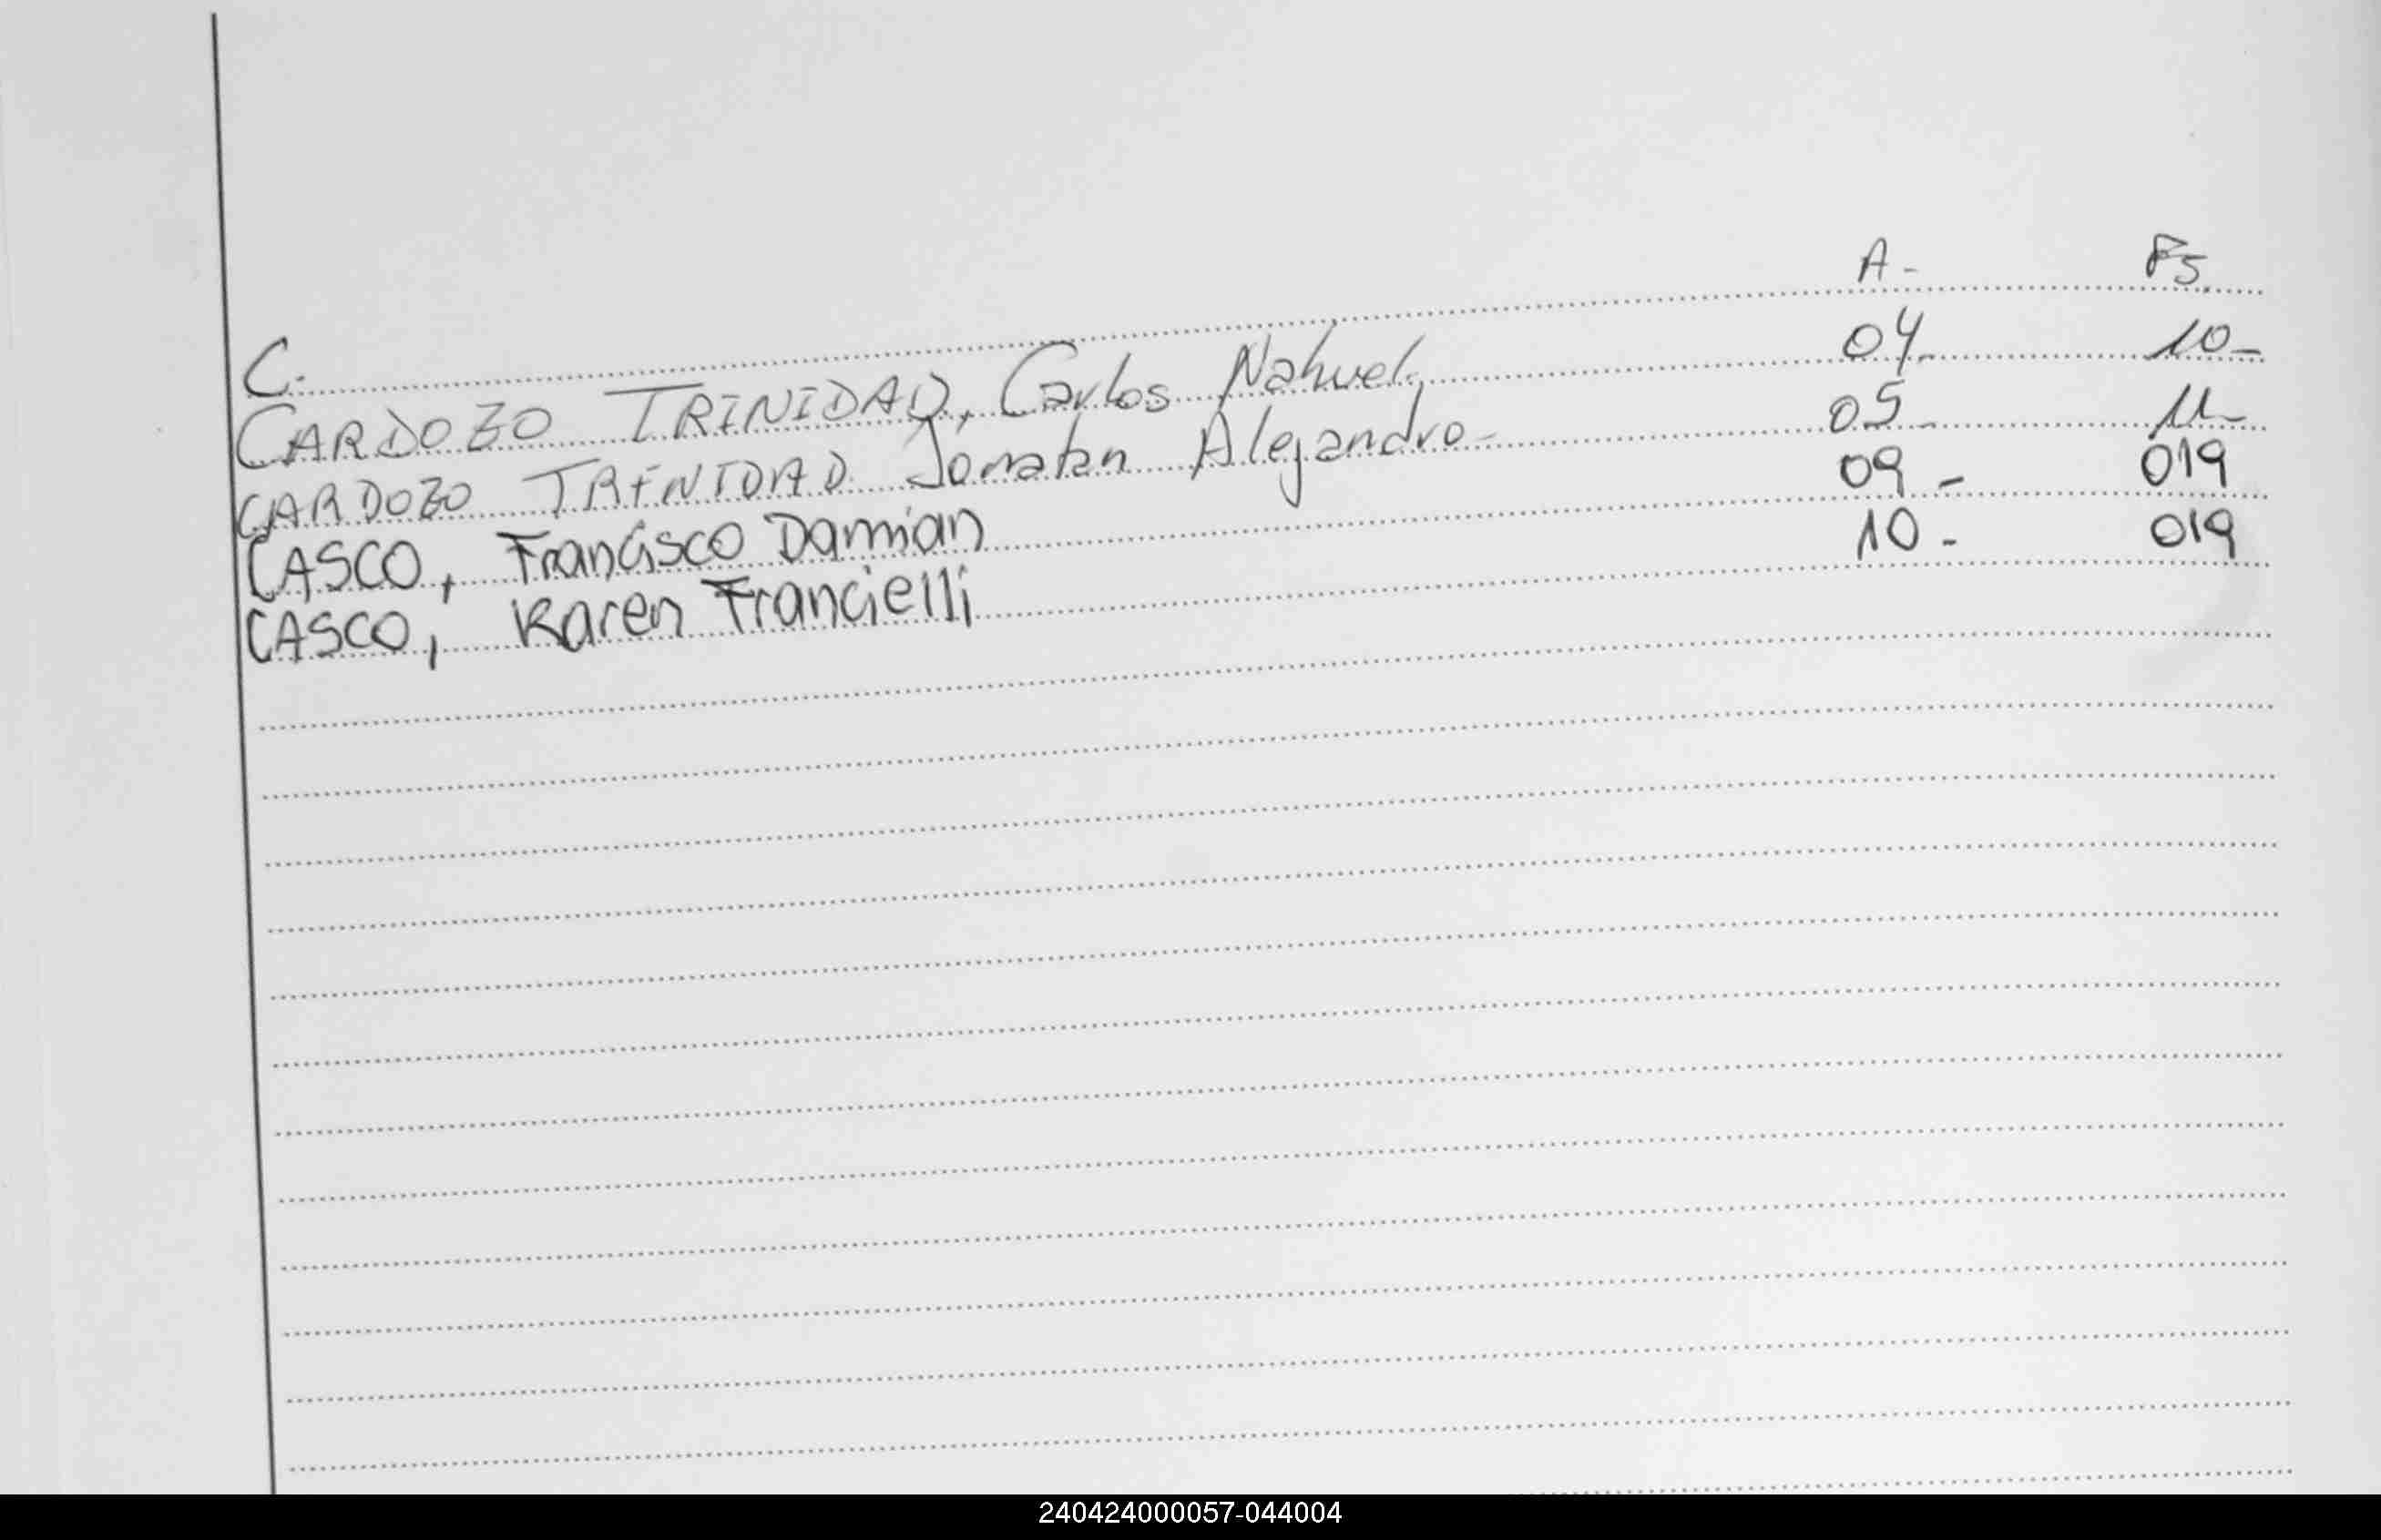 A- Fs.
C.
CARDOZO TRINIDAD, Carlos Nahuel. 04- 10-
CARDOZO TRINIDAD Jonatan Alejandro- 05- 11-
CASCO, Francisco Damian 09- 019
CASCO, Karen Francielli 10- 019
240424000057-044004